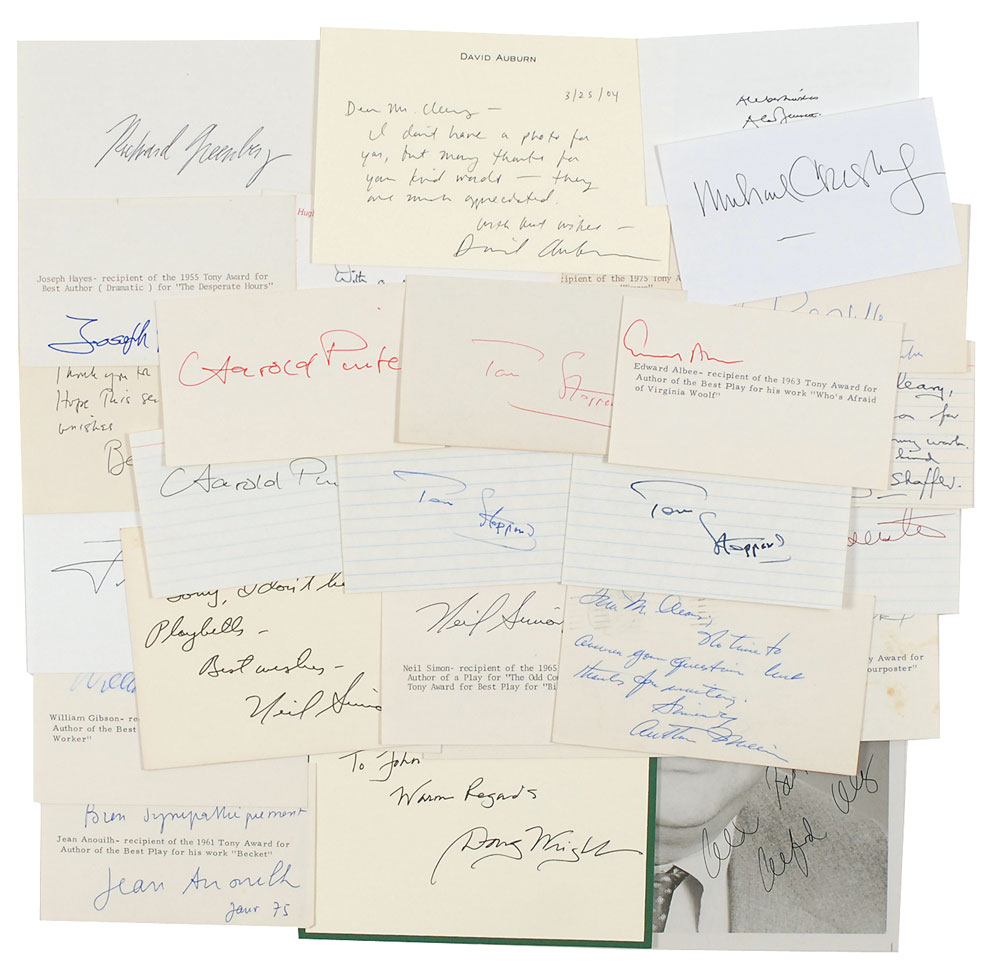 Richard Greenberg
DAVID AUBURN
3/25/04
Dear Mr. Cleary —
I don't have a photo for
you, but many thanks for
your kind words — they
are much appreciated.
with best wishes —
David Auburn
Michael Cristofer
Hugh
With a
Joseph Hayes- recipient of the 1955 Tony Award for
Best Author ( Dramatic ) for "The Desperate Hours"
Joseph
ipient of the 1975 Tony A
Harold Pinte
Tom
Stoppar
Edward Albee- recipient of the 1963 Tony Award for
Author of the Best Play for his work "Who's Afraid
of Virginia Woolf"
Thank you for
Hope This
wishes
Be
leary,
for
my work.
kind
Shaffer.
Harold Pin
Tom
Stoppard
Tom
Stoppard
Sorry, I don't ha
Playbills —
Best wishes —
Neil Simo
Neil Simon
Neil Simon- recipient of the 1965
Author of a Play for "The Odd Co
Tony Award for Best Play for "Bi
Dear Mr. Cleary,
No time to
answer your question but
thanks for writing.
Sincerely
Arthur Miller
y Award for
ourposter"
Willi
William Gibson- re
Author of the Best
Worker"
To John
Warm Regards
Doug Wright
Bien sympathiquement
Jean Anouilh- recipient of the 1961 Tony Award for
Author of the Best Play for his work "Becket"
Jean Anouilh
Janv 75
Alfred